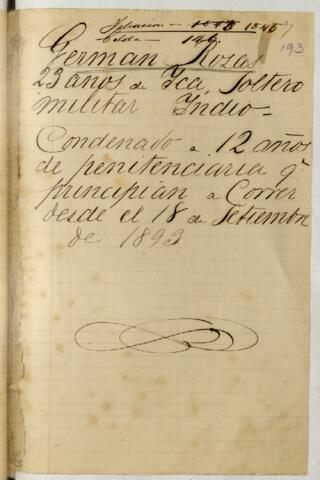 Filiacion - 1345 1345
Celda - 146
193
German Rozas
23 años de Ica, Soltero
militar Indio -
Condenado a 12 años
de penitenciaria q.
principian a Correr
desde el 18 de Setiembre
de 1893